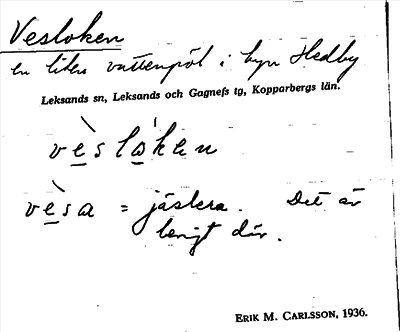 Vesloken
en liten vattenpöl i byn Hedby
Leksands sn, Leksands och Gagnefs tg, Kopparbergs län.
vèslo̱ken
vèsa = jäsłera. Det är
lerigt där.
ERIK M. CARLSSON, 1936.